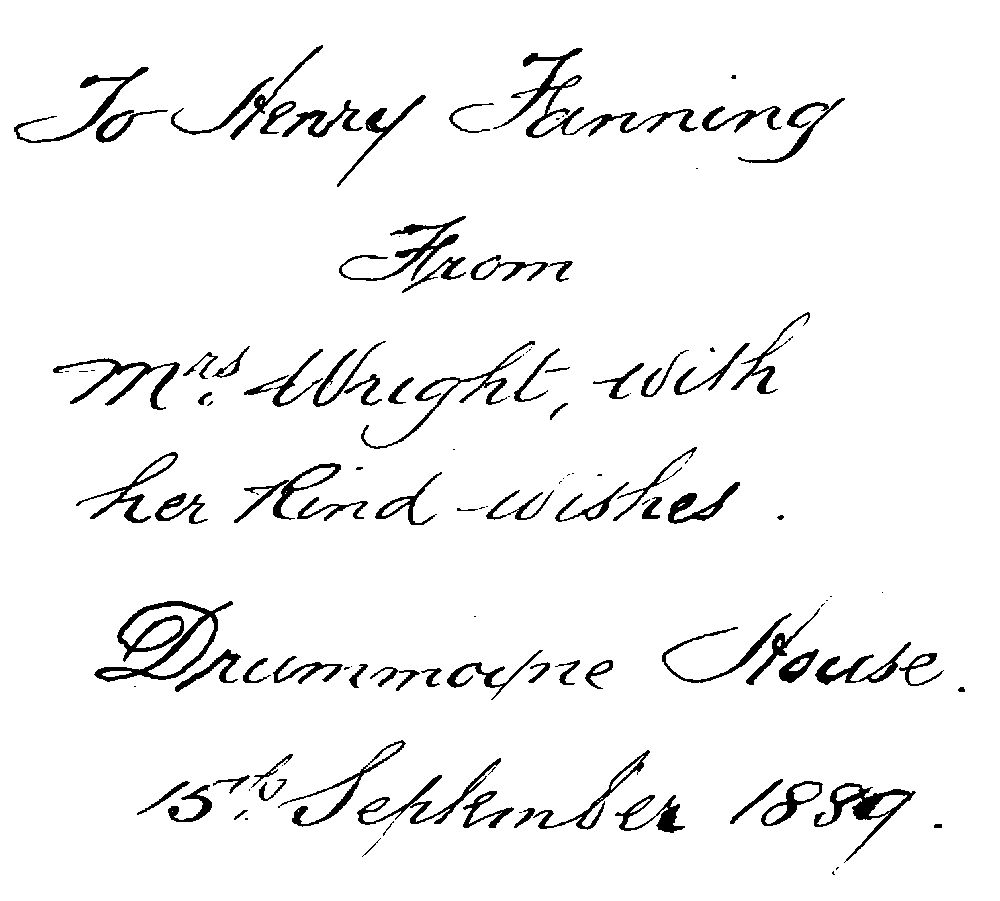 To Henry Fanning
From
Mrs. Wright, with
her Kind wishes.
Drummoyne House.
15th September 1889.